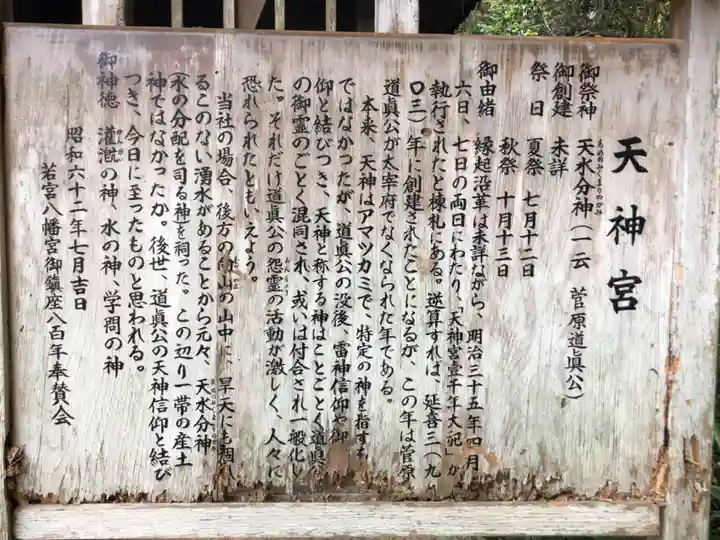 天神宮
御祭神　天水分神（一云　菅原道眞公）
あめのみくまりのかみ
御創建　未詳
祭日　夏祭　七月十二日
秋祭　十月十三日
御由緒　縁起沿革は未詳ながら、明治三十五年四月
六日、七日の両日にわたり、「天神宮壹千年大祀」が
執行されたと棟札にある。逆算すれば、延喜三（九
〇三）年に創建されたことになるが、この年は菅原
道眞公が太宰府でなくなられた年である。
本来、天神はアマツカミで、特定の神を指す
ではなかったが、道眞公の没後、雷神信仰や御
仰と結びつき、天神と称する神はことごとく道眞
の御霊のごとく混同され、或いは付合され一般化し
た。それだけ道眞公の怨霊の活動が激しく、人々に
おんりょう
恐れられたともいえよう。
当社の場合、後方の山の山中に、旱天にも涸れ
るこのない湧水があることから元々、天水分神
（水の分配を司る神を祠った。この辺り一帯の産土
神ではなかったか。後世、道眞公の天神信仰と結び
つき、今日に至ったものと思われる。
御神徳　灌漑の神、水の神、学問の神
かんがい
昭和六十二年七月吉日
若宮八幡宮御鎮座八百年奉賛会